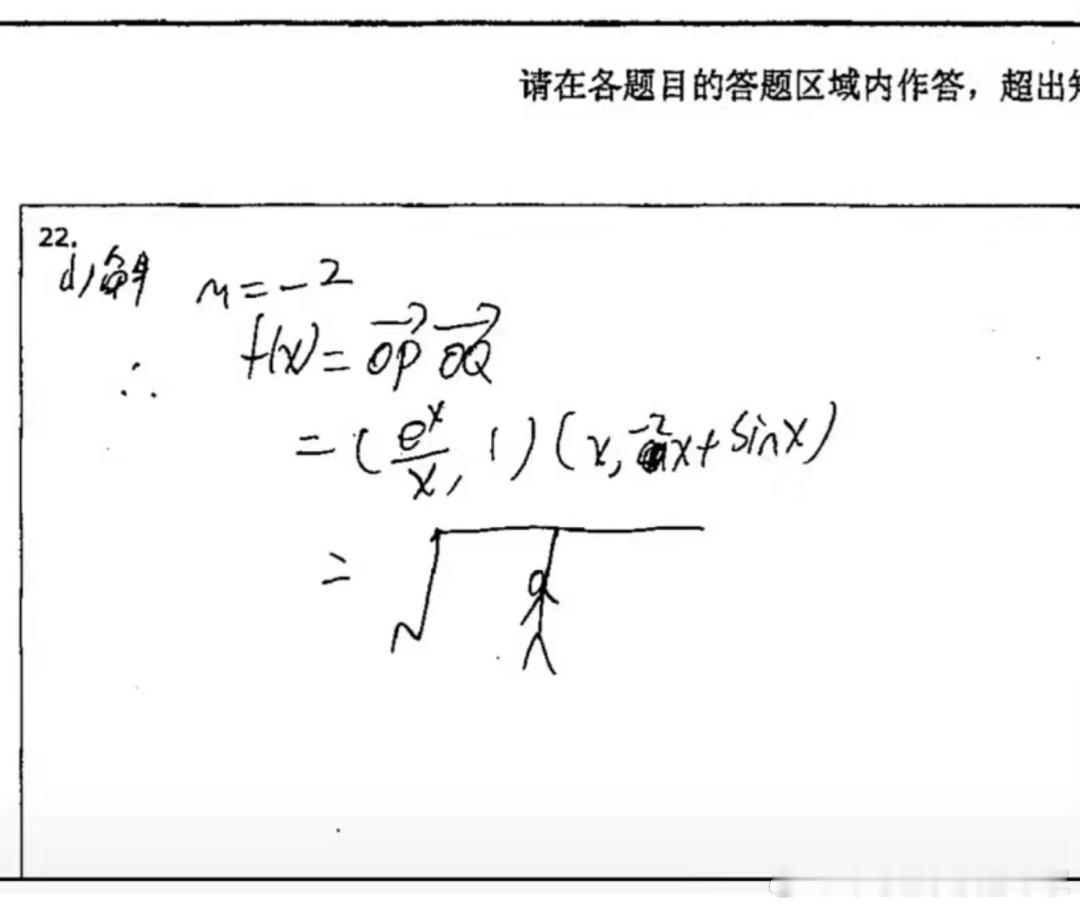 请在各题目的答题区域内作答，超出
22.
(1)解 m=-2
∴ f(x)=OP→ OQ→
=(e^x/x, 1)(x, -2x+sinx)
=√